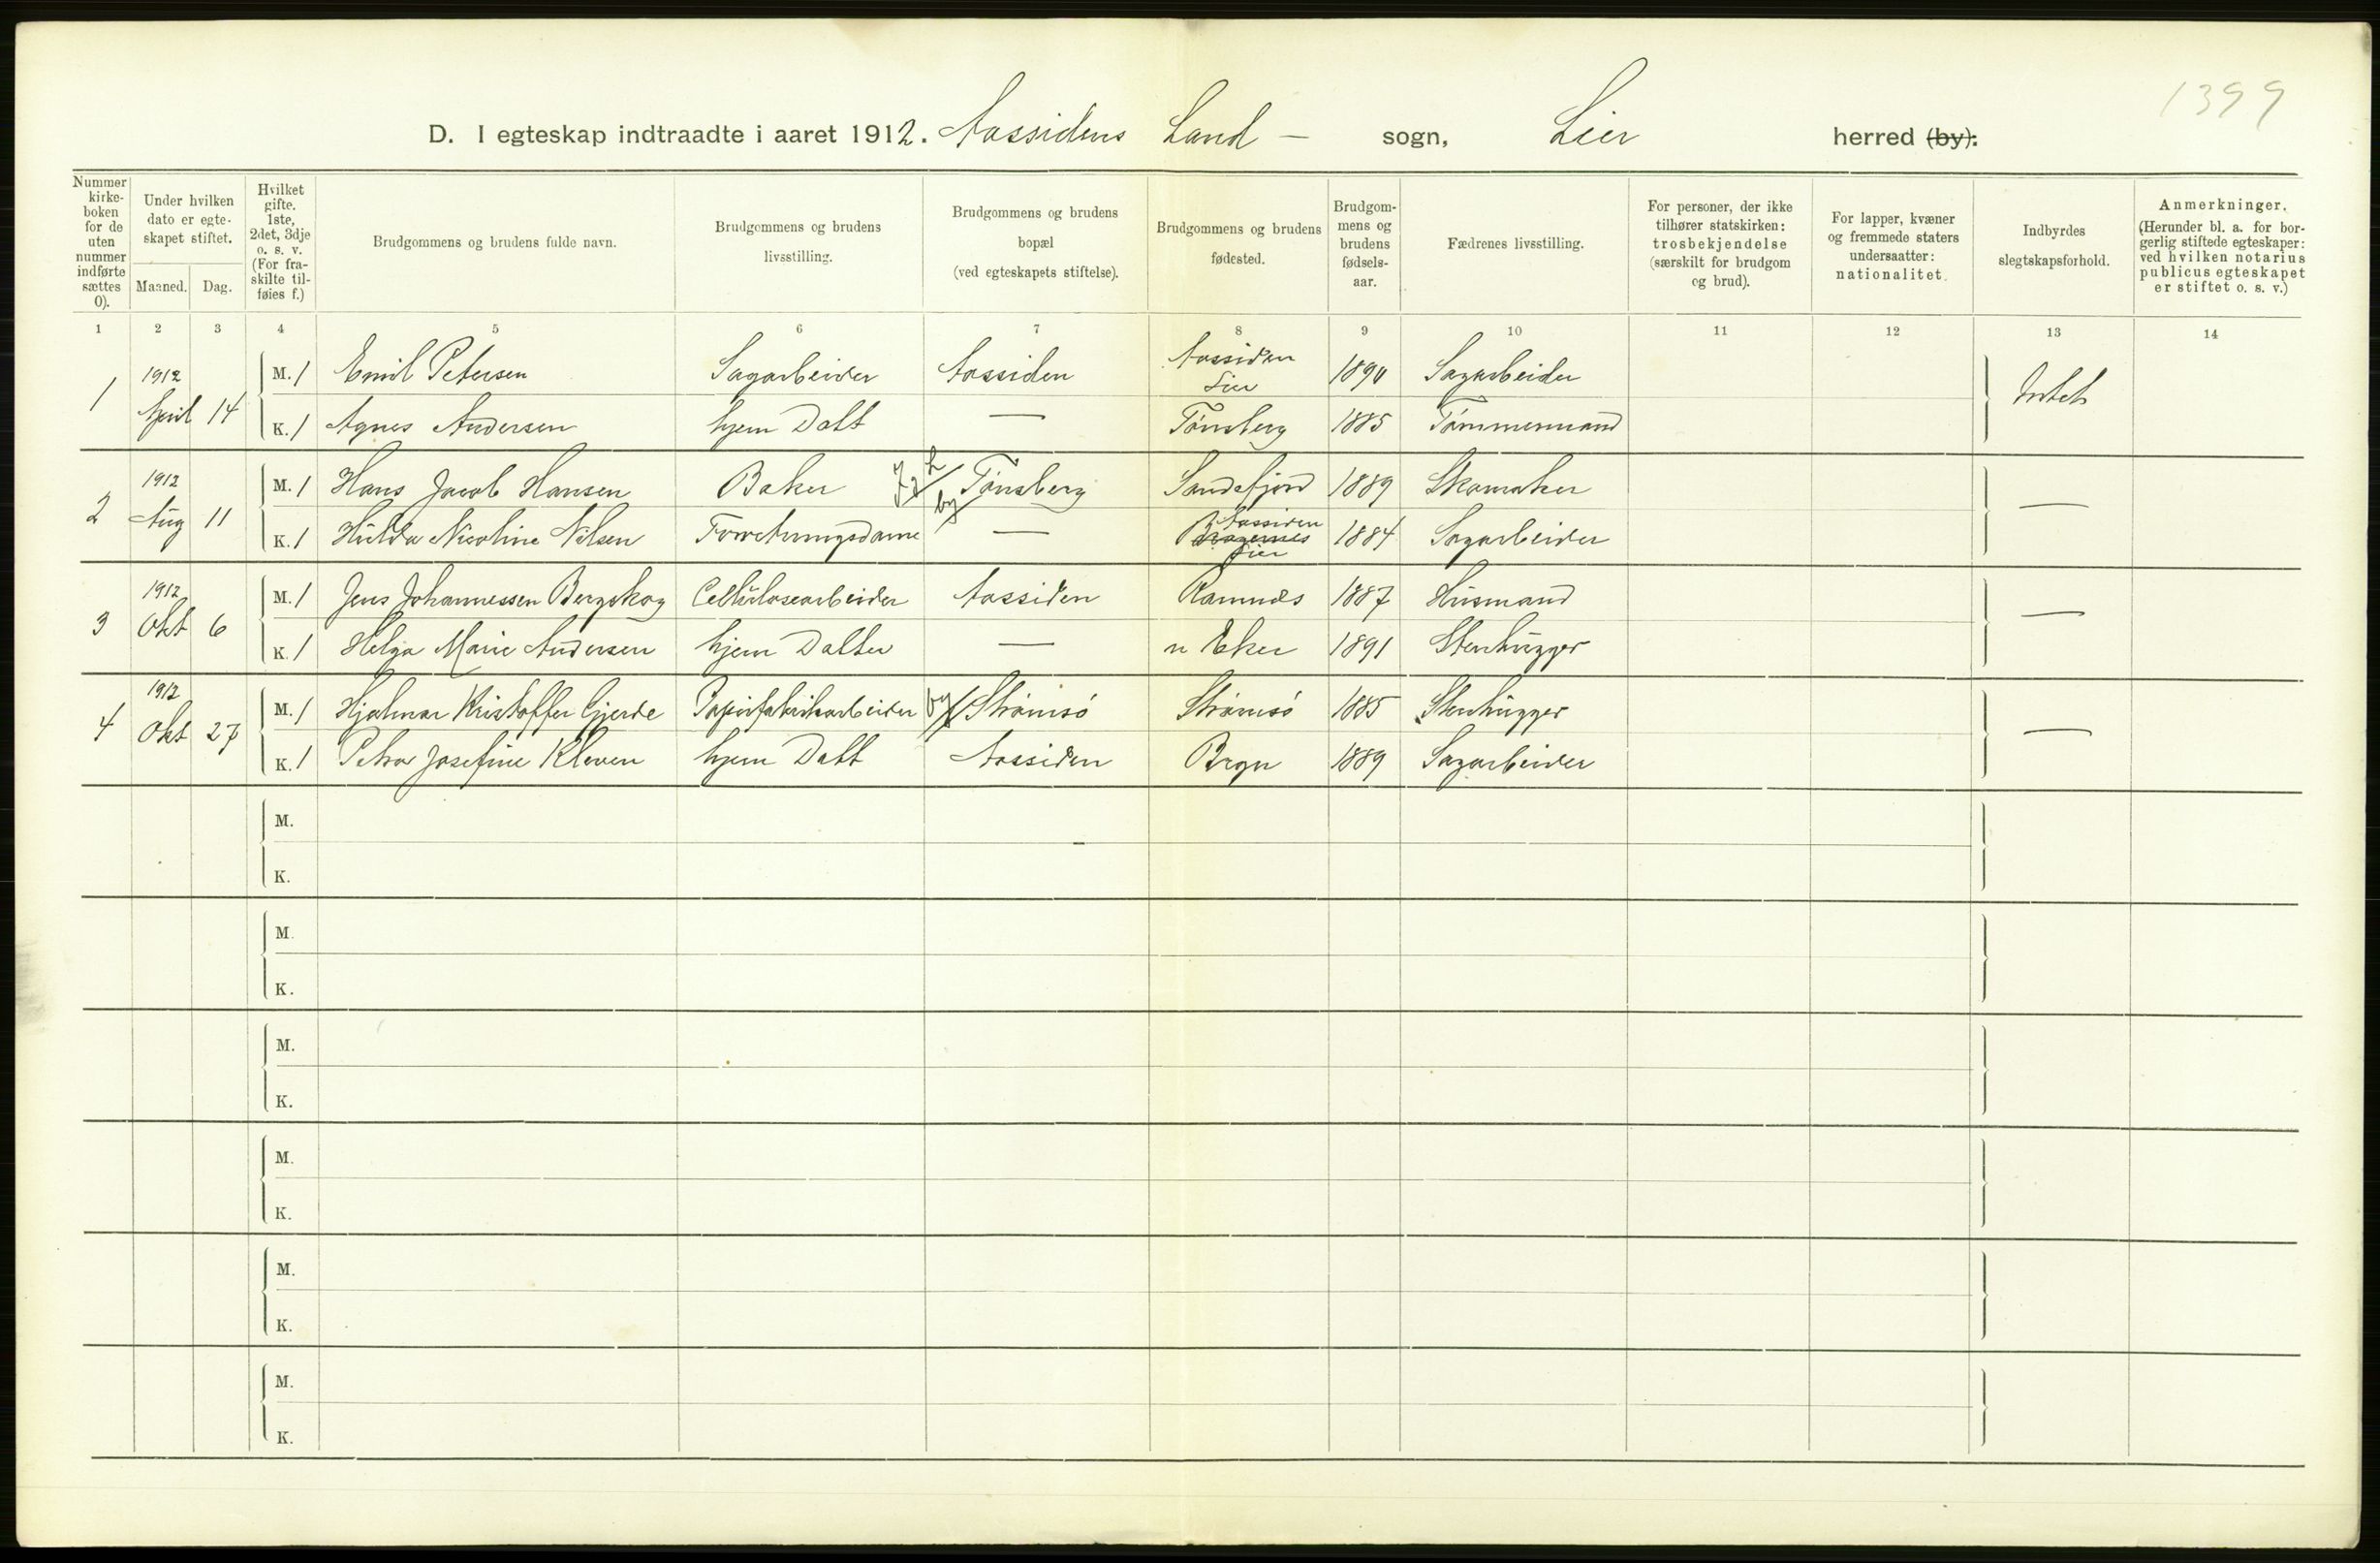 1399
D. I egteskap indtraadte i aaret 1912. Aassidens Land – sogn, Lier herred (by):
Nummer kirke-boken for de uten nummer indførte sættes 0).
Under hvilken dato er egte-skapet stiftet.
Maaned. Dag.
Hvilket gifte. 1ste, 2det, 3dje o. s. v. (For fra-skilte til-føies f.)
Brudgommens og brudens fulde navn.
Brudgommens og brudens livsstilling.
Brudgommens og brudens bopæl (ved egteskapets stiftelse).
Brudgommens og brudens fødested.
Brudgom-mens og brudens fødsels-aar.
Fædrenes livsstilling.
For personer, der ikke tilhører statskirken: trosbekjendelse (særskilt for brudgom og brud).
For lapper, kvæner og fremmede staters undersaatter: nationalitet.
Indbyrdes slegtskapsforhold.
Anmerkninger. (Herunder bl. a. for bor-gerlig stiftede egteskaper: ved hvilken notarius publicus egteskapet er stiftet o. s. v.)
1 2 3 4 5 6 7 8 9 10 11 12 13 14
1 1912 April 14 M. 1 Emil Petersen Sagarbeider Aassiden Aassiden Lier 1890 Sagarbeider Intet
K. 1 Agnes Andersen hjem Datt — Tønsberg 1885 Tømmermand
2 1912 Aug 11 M. 1 Hans Jacob Hansen Baker by Tønsberg Sandefjord 1889 Skomaker —
K. 1 Hulda Nicoline Nilsen Forretningsdame — Bragernes Aassiden Lier 1884 Sagarbeider
3 1912 Okt 6 M. 1 Jens Johannessen Bergskog Cellulosearbeider Aassiden Ramnæs 1887 Husmand —
K. 1 Helga Marie Andersen hjem Datter — n Eker 1891 Stenhugger
4 1912 Okt 27 M. 1 Hjalmar Kristoffer Gjerde Papirfabrikarbeider by Strømsö Strømsö 1885 Stenhugger —
K. 1 Petra Josefine Kleven hjem Datt Aassiden Brgn 1889 Sagarbeider
M.
K.
M.
K.
M.
K.
M.
K.
M.
K.
M.
K.